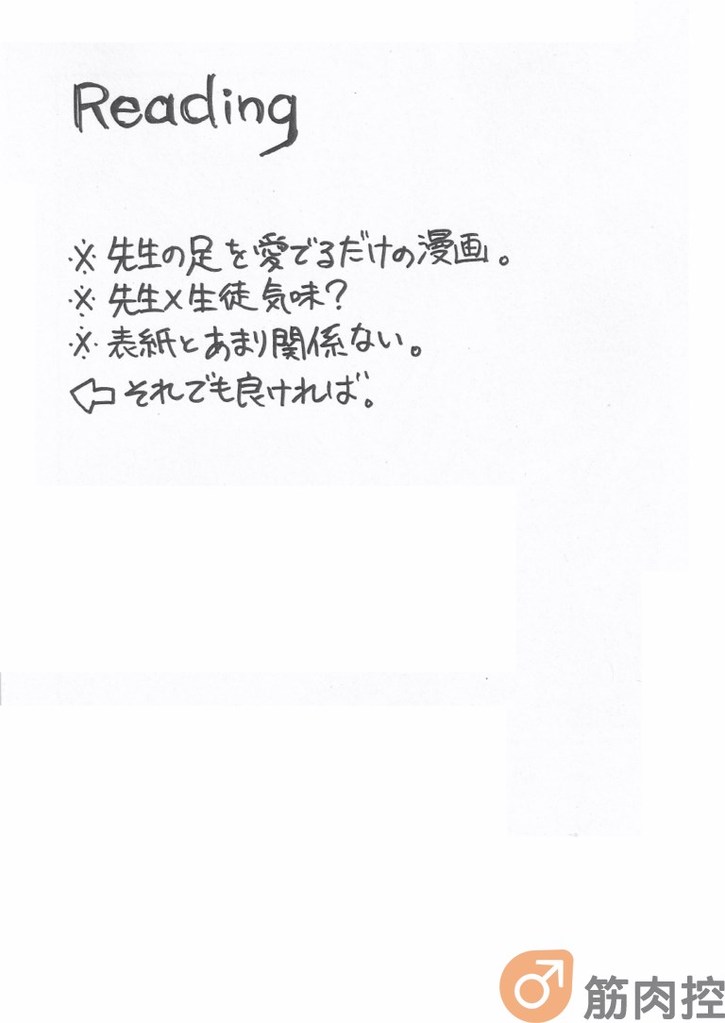 Reading
※ 先生の足を愛でるだけの漫画。
※ 先生×生徒気味？
※ 表紙とあまり関係ない。
⇦ それでも良ければ。
筋肉控